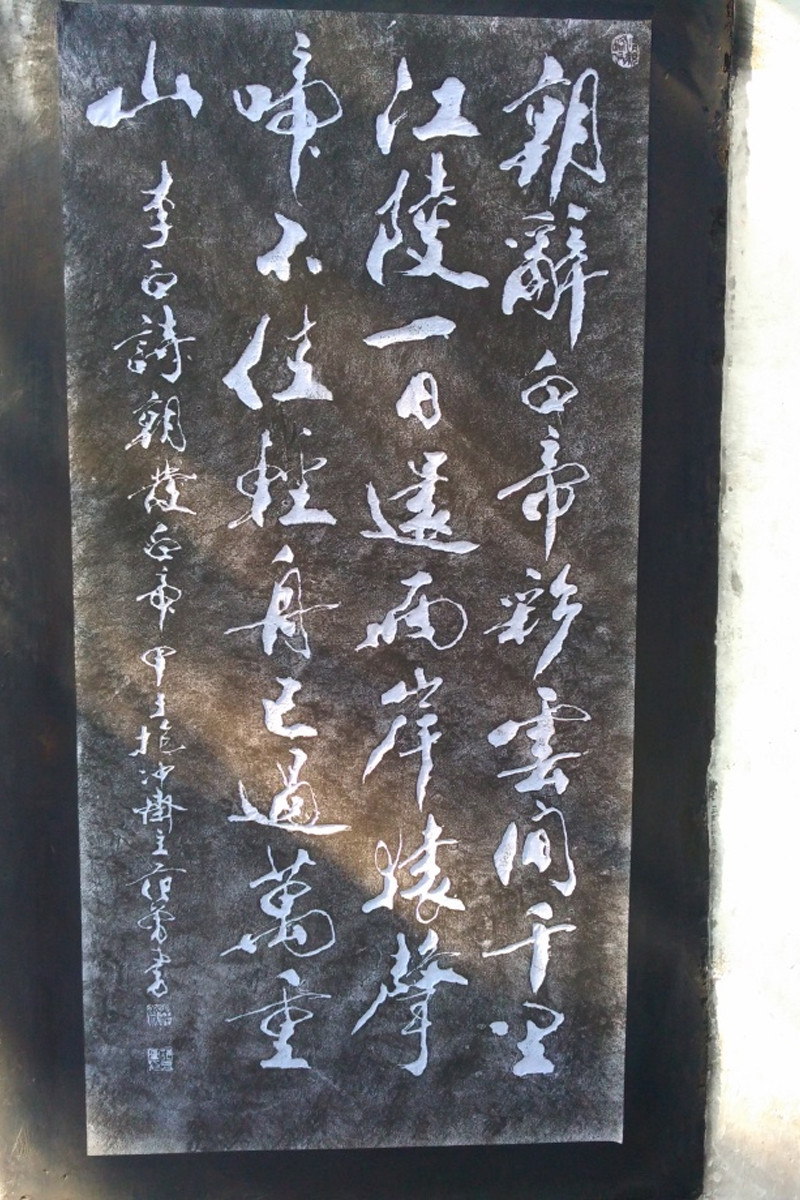 朝辭白帝彩雲間千里
江陵一日還兩岸猿聲
啼不住輕舟已過萬重
山 李白詩朝發白帝甲子抱冲齋主范曾書